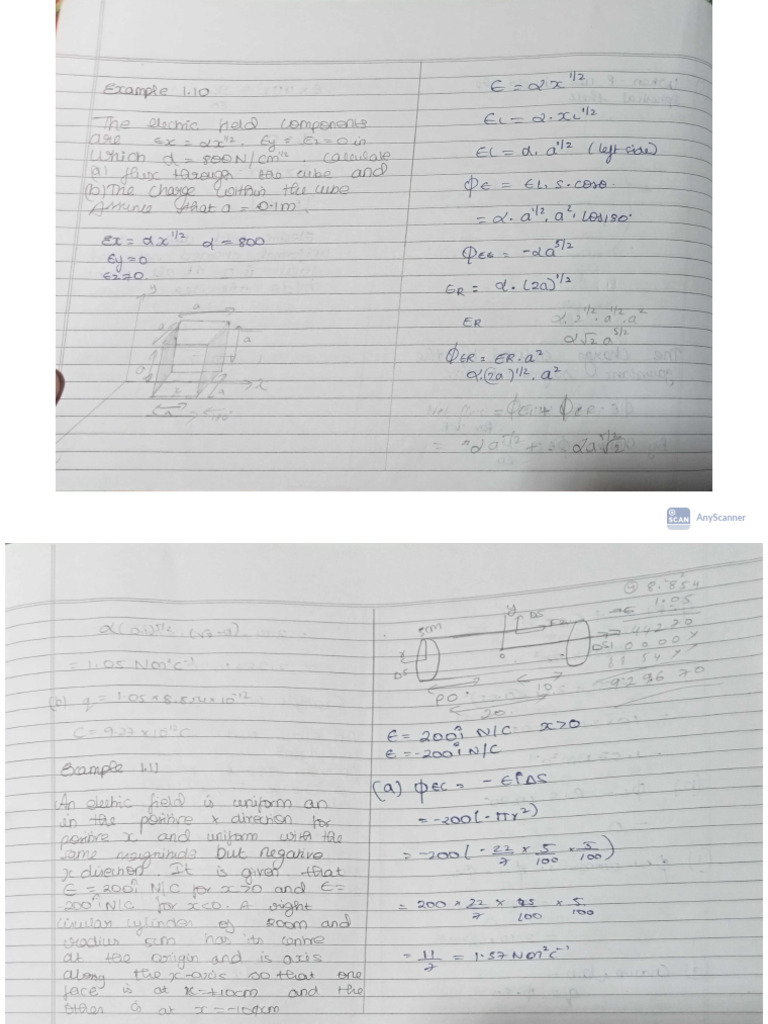 Example 1.10
The electric field components
are Ex = αx^1/2, Ey = Ez = 0 in
which α = 800 N/cm^1/2. Calculate
a) flux through the cube and
(b) The charge within the cube
Assume that a = 0.1m.
Ex = αx^1/2 α = 800
Ey = 0
Ez = 0
y
a
a
a
x
x
a
E = α.x^1/2
EL = α.xL^1/2
EL = α.a^1/2 (left side)
ΦE = EL.S.cosθ.
= α.a^1/2.a^2.cos180°
ΦEL = -αa^5/2
ER = α.(2a)^1/2
ER
α.2^1/2.a^1/2.a^2
α√2 a^5/2
ΦER = ER.a^2
α.(2a)^1/2.a^2
= ΦEL + ΦER
SCAN AnyScanner
= 1.05 Nm^2C^-1
Example 1.11
An electric field is uniform an
in the positive x direction for
positive x and uniform with the
same magnitude but negative
x direction. It is given that
E = 200î N/C for x>0 and E=
-200î N/C for x<0. A right
circular cylinder of 20cm and
radius 5cm has its centre
at the origin and is axis
along the x-axis so that one
face is at x=+10cm and the
other is at x=-10cm
5cm
y
ΔS
x
o
ΔS
10
20
8.854
1.05
44270
0000x
9.29670
E = 200î N/C x>0
E = -200î N/C
(a) ΦEC = -EîΔS
= -200(-πr^2)
= -200(-22/7 × 5/100 × 5/100)
= 200 × 22/7 × 5/100 × 5/100
= 11/7 = 1.57 Nm^2C^-1